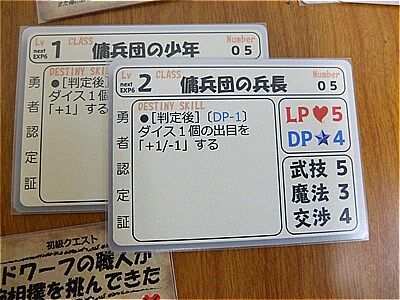 Lv 1 CLASS 傭兵団の少年 Number 05
next EXP6
勇者認定証
DESTINY SKILL
●[判定後]
ダイス１個
「+1」する
Lv 2 CLASS 傭兵団の兵長 Number 05
next EXP6
勇者認定証
DESTINY SKILL
●[判定後] (DP-1)
ダイス１個の出目を
「+1/-1」する
LP♥5
DP★4
武技 5
魔法 3
交渉 4
初級クエスト
ドワーフの職人が
相撲を挑んできた